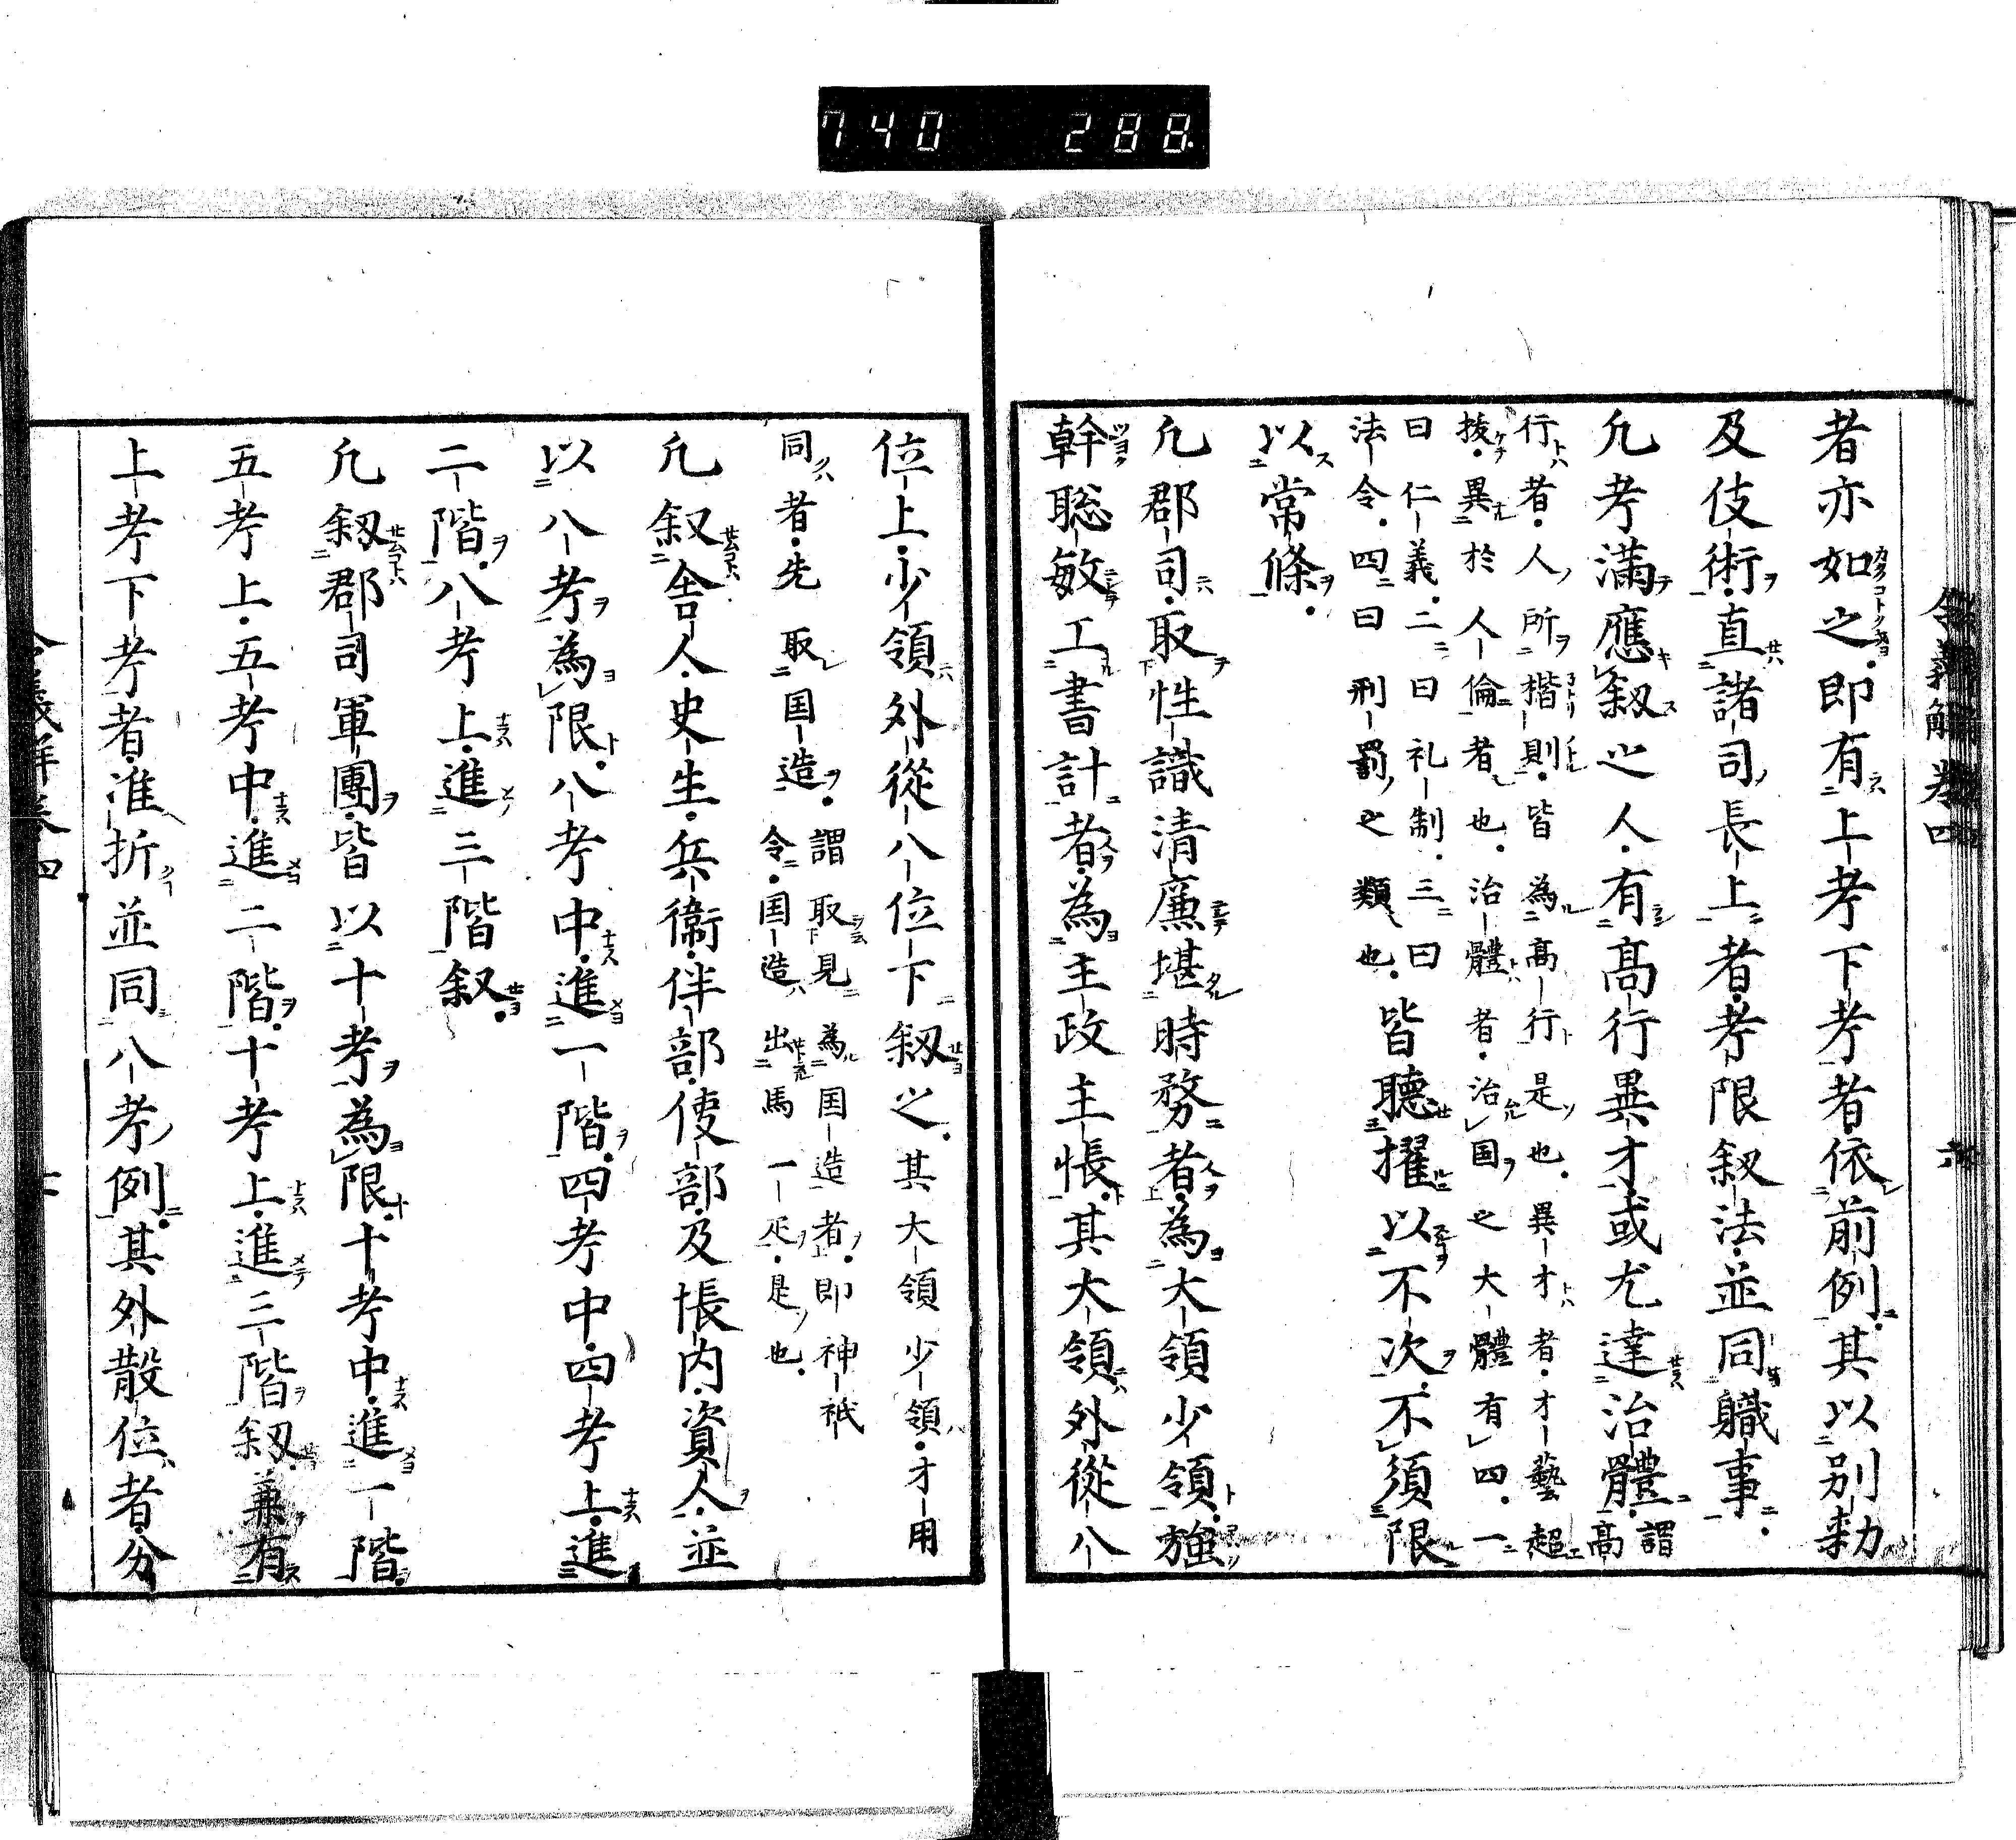 740 288
令義解卷四 六
者亦如之即有上考下考者依前例其以別勅
及伎術直諸司長上者考限叙法並同職事
凢考滿應叙之人有高行異才或尤達治體謂高
行者人所楷則皆為高行是也異才者才藝超
拔異於人倫者也治體者治国之大體有四一
曰仁義二曰礼制三曰
法令四曰刑罰之類也皆聽擢以不次不須限
以常條
凢郡司取性識清廉堪時務者為大領少領強
幹聡敏工書計者為主政主帳其大領外從八
位上少領外從八位下叙之其大領少領才用
同者先取国造謂取見為国造者即神祇
令国造出馬一疋是也
凢叙舎人史生兵衞伴部使部及帳内資人並
以八考為限八考中進一階四考中四考上進
二階八考上進三階叙
凢叙郡司軍團皆以十考為限十考中進一階
五考上五考中進二階十考上進三階叙兼有
上考下考者准折並同八考例其外散位者分
令義解卷四